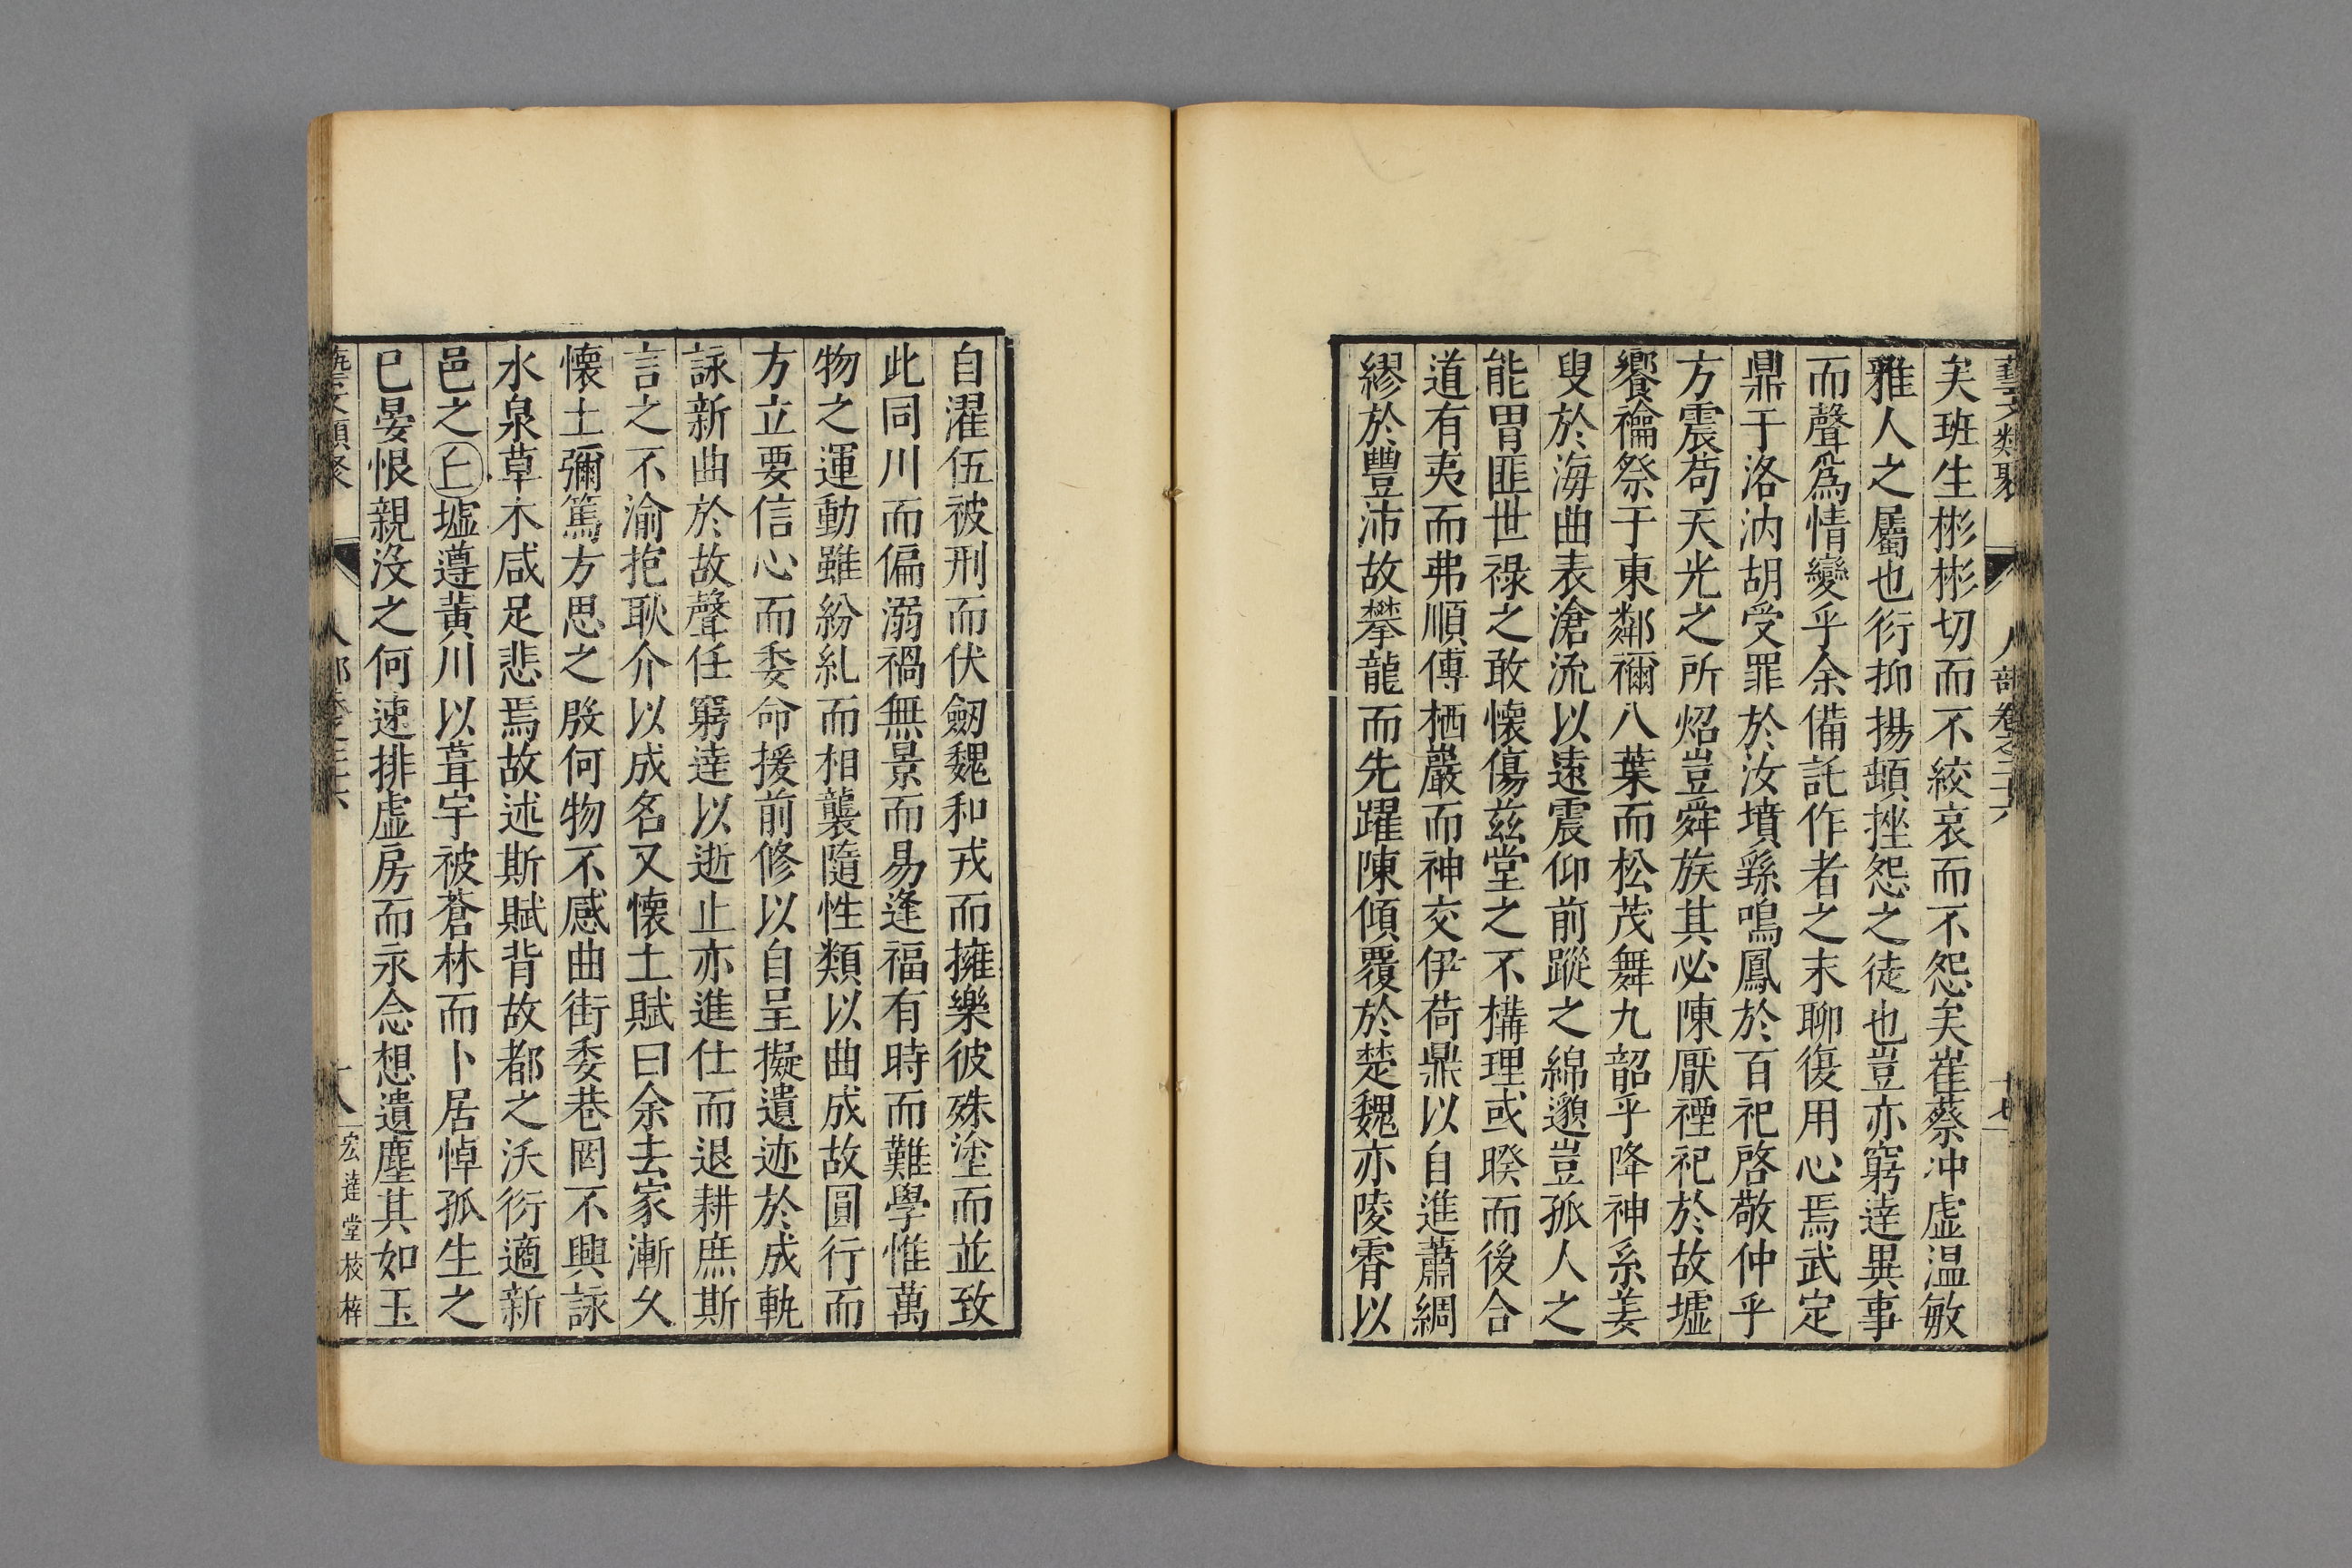 藝文類聚 人部卷之二十六 十七
矣班生彬彬切而不絞哀而不怨矣崔蔡冲虛温敏
雅人之屬也衍抑揚頓挫怨之徒也豈亦窮達異事
而聲爲情變乎余備託作者之末聊復用心焉武定
鼎于洛汭胡受罪於汝墳繇鳴鳳於百祀啓敬仲乎
方震苟天光之所炤豈舜族其必陳厭禋祀於故墟
饗禴祭于東鄰禰八葉而松茂舞九韶乎降神系姜
叟於海曲表滄流以遠震仰前蹤之綿邈豈孤人之
能胃匪世祿之敢懷傷茲堂之不構理或暌而後合
道有夷而弗順傅栖巖而神交伊荷鼎以自進蕭綢
繆於豐沛故攀龍而先躍陳傾覆於楚魏亦陵霄以
自濯伍被刑而伏劒魏和戎而擁樂彼殊塗而並致
此同川而偏溺禍無景而易逢福有時而難學惟萬
物之運動雖紛糺而相襲隨性類以曲成故圓行而
方立要信心而委命援前修以自呈擬遺迹於成軌
詠新曲於故聲任窮達以逝止亦進仕而退耕庶斯
言之不渝抱耿介以成名又懷土賦曰余去家漸久
懷土彌篤方思之殷何物不感曲街委巷罔不興詠
水泉草木咸足悲焉故述斯賦背故都之沃衍適新
邑之丘墟遵黃川以葺宇被蒼林而卜居悼孤生之
已晏恨親沒之何速排虛房而永念想遺塵其如玉
藝文類聚 人部卷之二十六 十八 宏達堂校梓